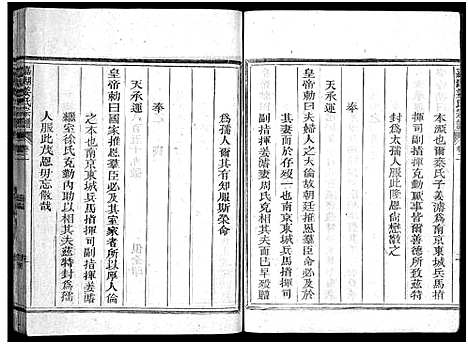 本源也爾蔡氏子姜濤為南京東城兵馬指
揮司副指揮克勤厥事皆爾善德所致茲特
封為太孺人服此隆恩尚懋敬之
奉
天承運
皇帝勅曰夫婦人之大倫故朝廷推恩羣臣命必及
其妻而於存殁一也南京東城兵馬指揮司
副指揮姜濤妻周氏克宜于家早殁贈
為孺人爾其有知服斯榮命
奉
天承運
皇帝勅曰國家推恩羣臣必及其室家者所以厚人倫
之本也南京東城兵馬指揮司副指揮姜濤
繼室徐氏克勤內助以相其夫茲特封為孺
人服此茂恩毋忘儆哉